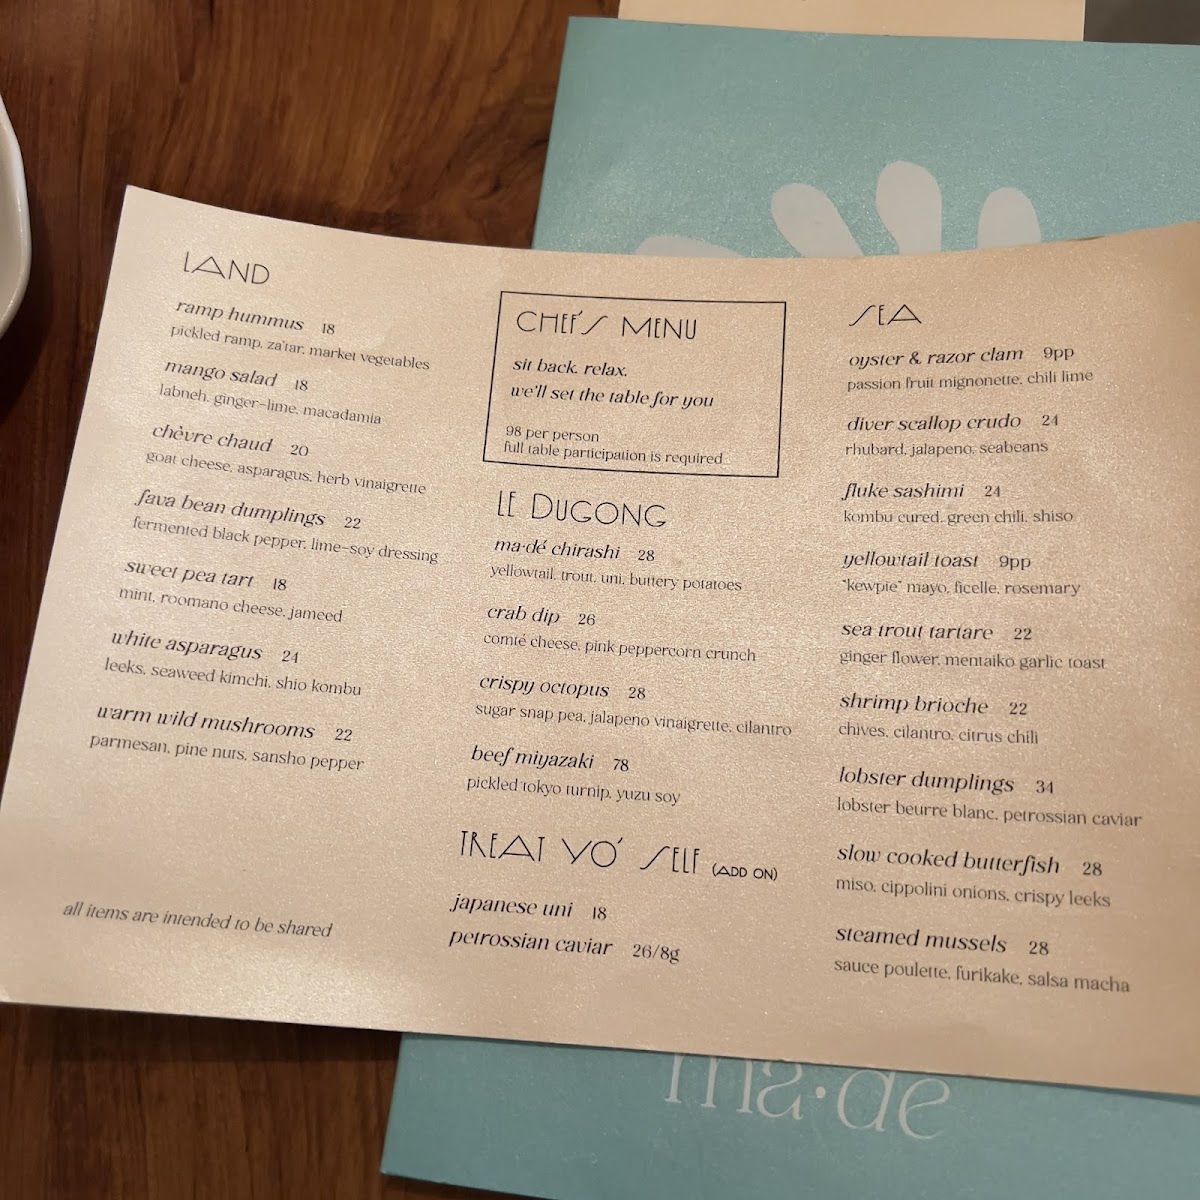 LAND
ramp hummus 18
pickled ramp, za'tar, market vegetables
mango salad 18
labneh, ginger-lime, macadamia
chèvre chaud 20
goat cheese, asparagus, herb vinaigrette
fava bean dumplings 22
fermented black pepper, lime-soy dressing
sweet pea tart 18
mint, roomano cheese, jameed
white asparagus 24
leeks, seaweed kimchi, shio kombu
warm wild mushrooms 22
parmesan, pine nuts, sansho pepper
all items are intended to be shared
CHEF'S MENU
sit back. relax.
we'll set the table for you
98 per person
full table participation is required
LE DUGONG
ma·dé chirashi 28
yellowtail, trout, uni, buttery potatoes
crab dip 26
comté cheese, pink peppercorn crunch
crispy octopus 28
sugar snap pea, jalapeno vinaigrette, cilantro
beef miyazaki 78
pickled tokyo turnip, yuzu soy
TREAT YO' SELF (ADD ON)
japanese uni 18
petrossian caviar 26/8g
SEA
oyster & razor clam 9pp
passion fruit mignonette, chili lime
diver scallop crudo 24
rhubard, jalapeno, seabeans
fluke sashimi 24
kombu cured, green chili, shiso
yellowtail toast 9pp
"kewpie" mayo, ficelle, rosemary
sea trout tartare 22
ginger flower, mentaiko garlic toast
shrimp brioche 22
chives, cilantro, citrus chili
lobster dumplings 34
lobster beurre blanc, petrossian caviar
slow cooked butterfish 28
miso, cippolini onions, crispy leeks
steamed mussels 28
sauce poulette, furikake, salsa macha
ma·de